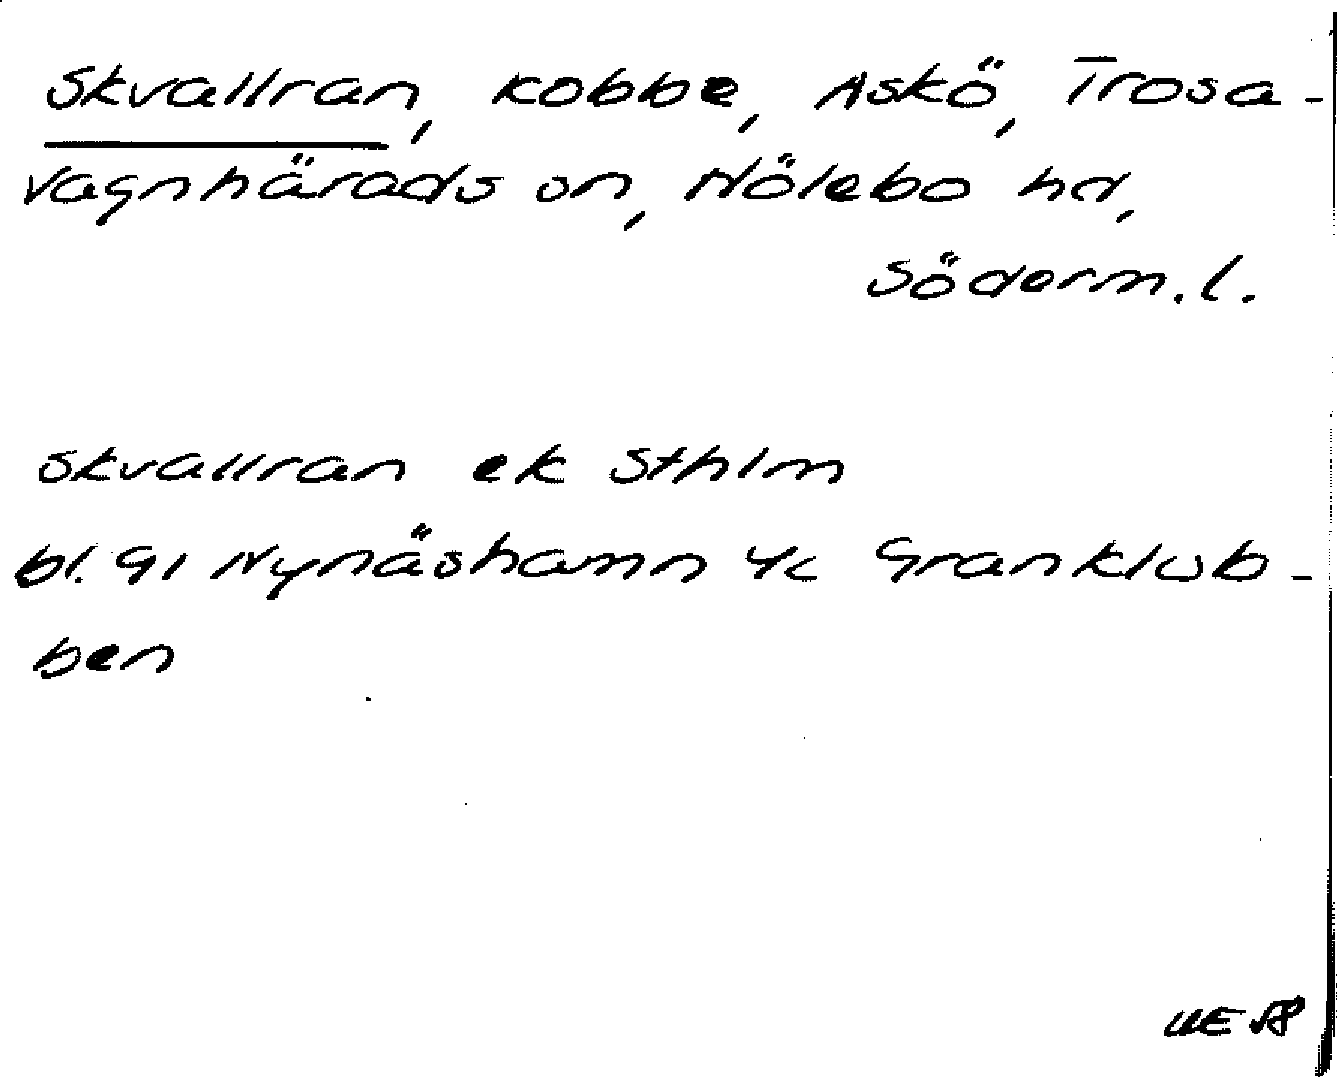 Skvallran, kobbe, Askö, Trosa-
Vagnhärads sn, Hölebo hd,
Söderm.l.
Skvallran ek Sthlm
bl. 91 Nynäshamn 4c Granklub-
ben